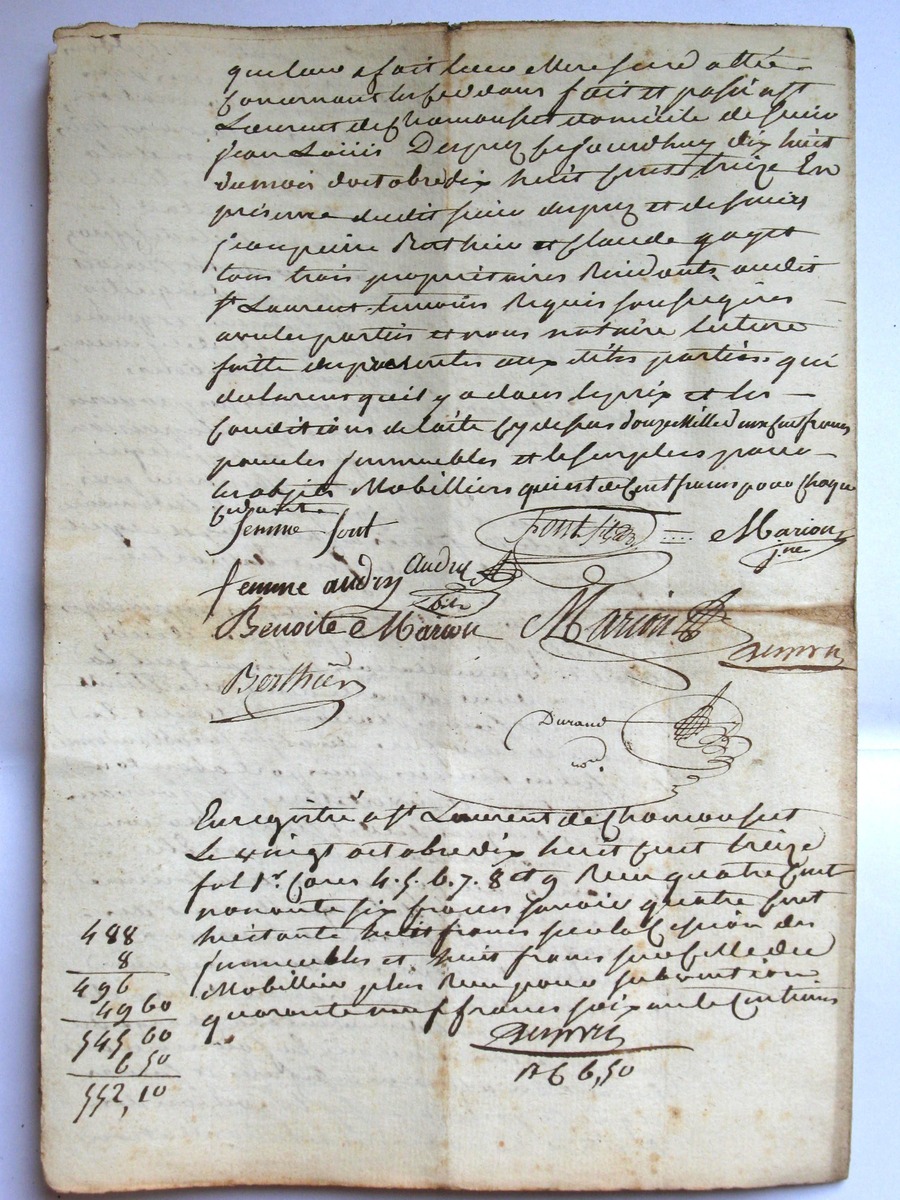 fait
concernant fait et passé a St
Laurent de Chamousset domicile de sieur
jean Louis Dupuy ce jourdhuy dix huit
du mois doctobre dix huit cent treize En
présence dudit sieur dupuy et de sieurs
jean pierre Mathieu et Claude gayet
tous trois propriétaires Residants audit
St Laurent temoins Requis soussignés
avec les parties et nous notaire lecture
faitte des presentes aux dites parties qui
declarent quil y a dans le prix et les
Conditions de laite cy dessus douze Mille deux Cent francs
pour les immeubles et le surplus pour
les objets Mobilliers qui est de Cent francs pour Chaque
femme font Font Marion
jne
femme audry Audry
Benoite Marion Marion
Berthier
Durand
not.
Enregistré a St Laurent de Chamousset
Le vingt octobre dix huit cent treize
fol 1r. Cases 4. 5. 6. 7. 8 et 9 Reçu quatre Cent
nonante six francs savoir quatre Cent
huitante huit francs sur la Cession des
immeubles et huit francs sur Celle du
Mobilier plus Reçu pour subvention
quarante neuf francs soixante Centimes
488
8
496
49 60
545 60
6 50
552, 10
6,50